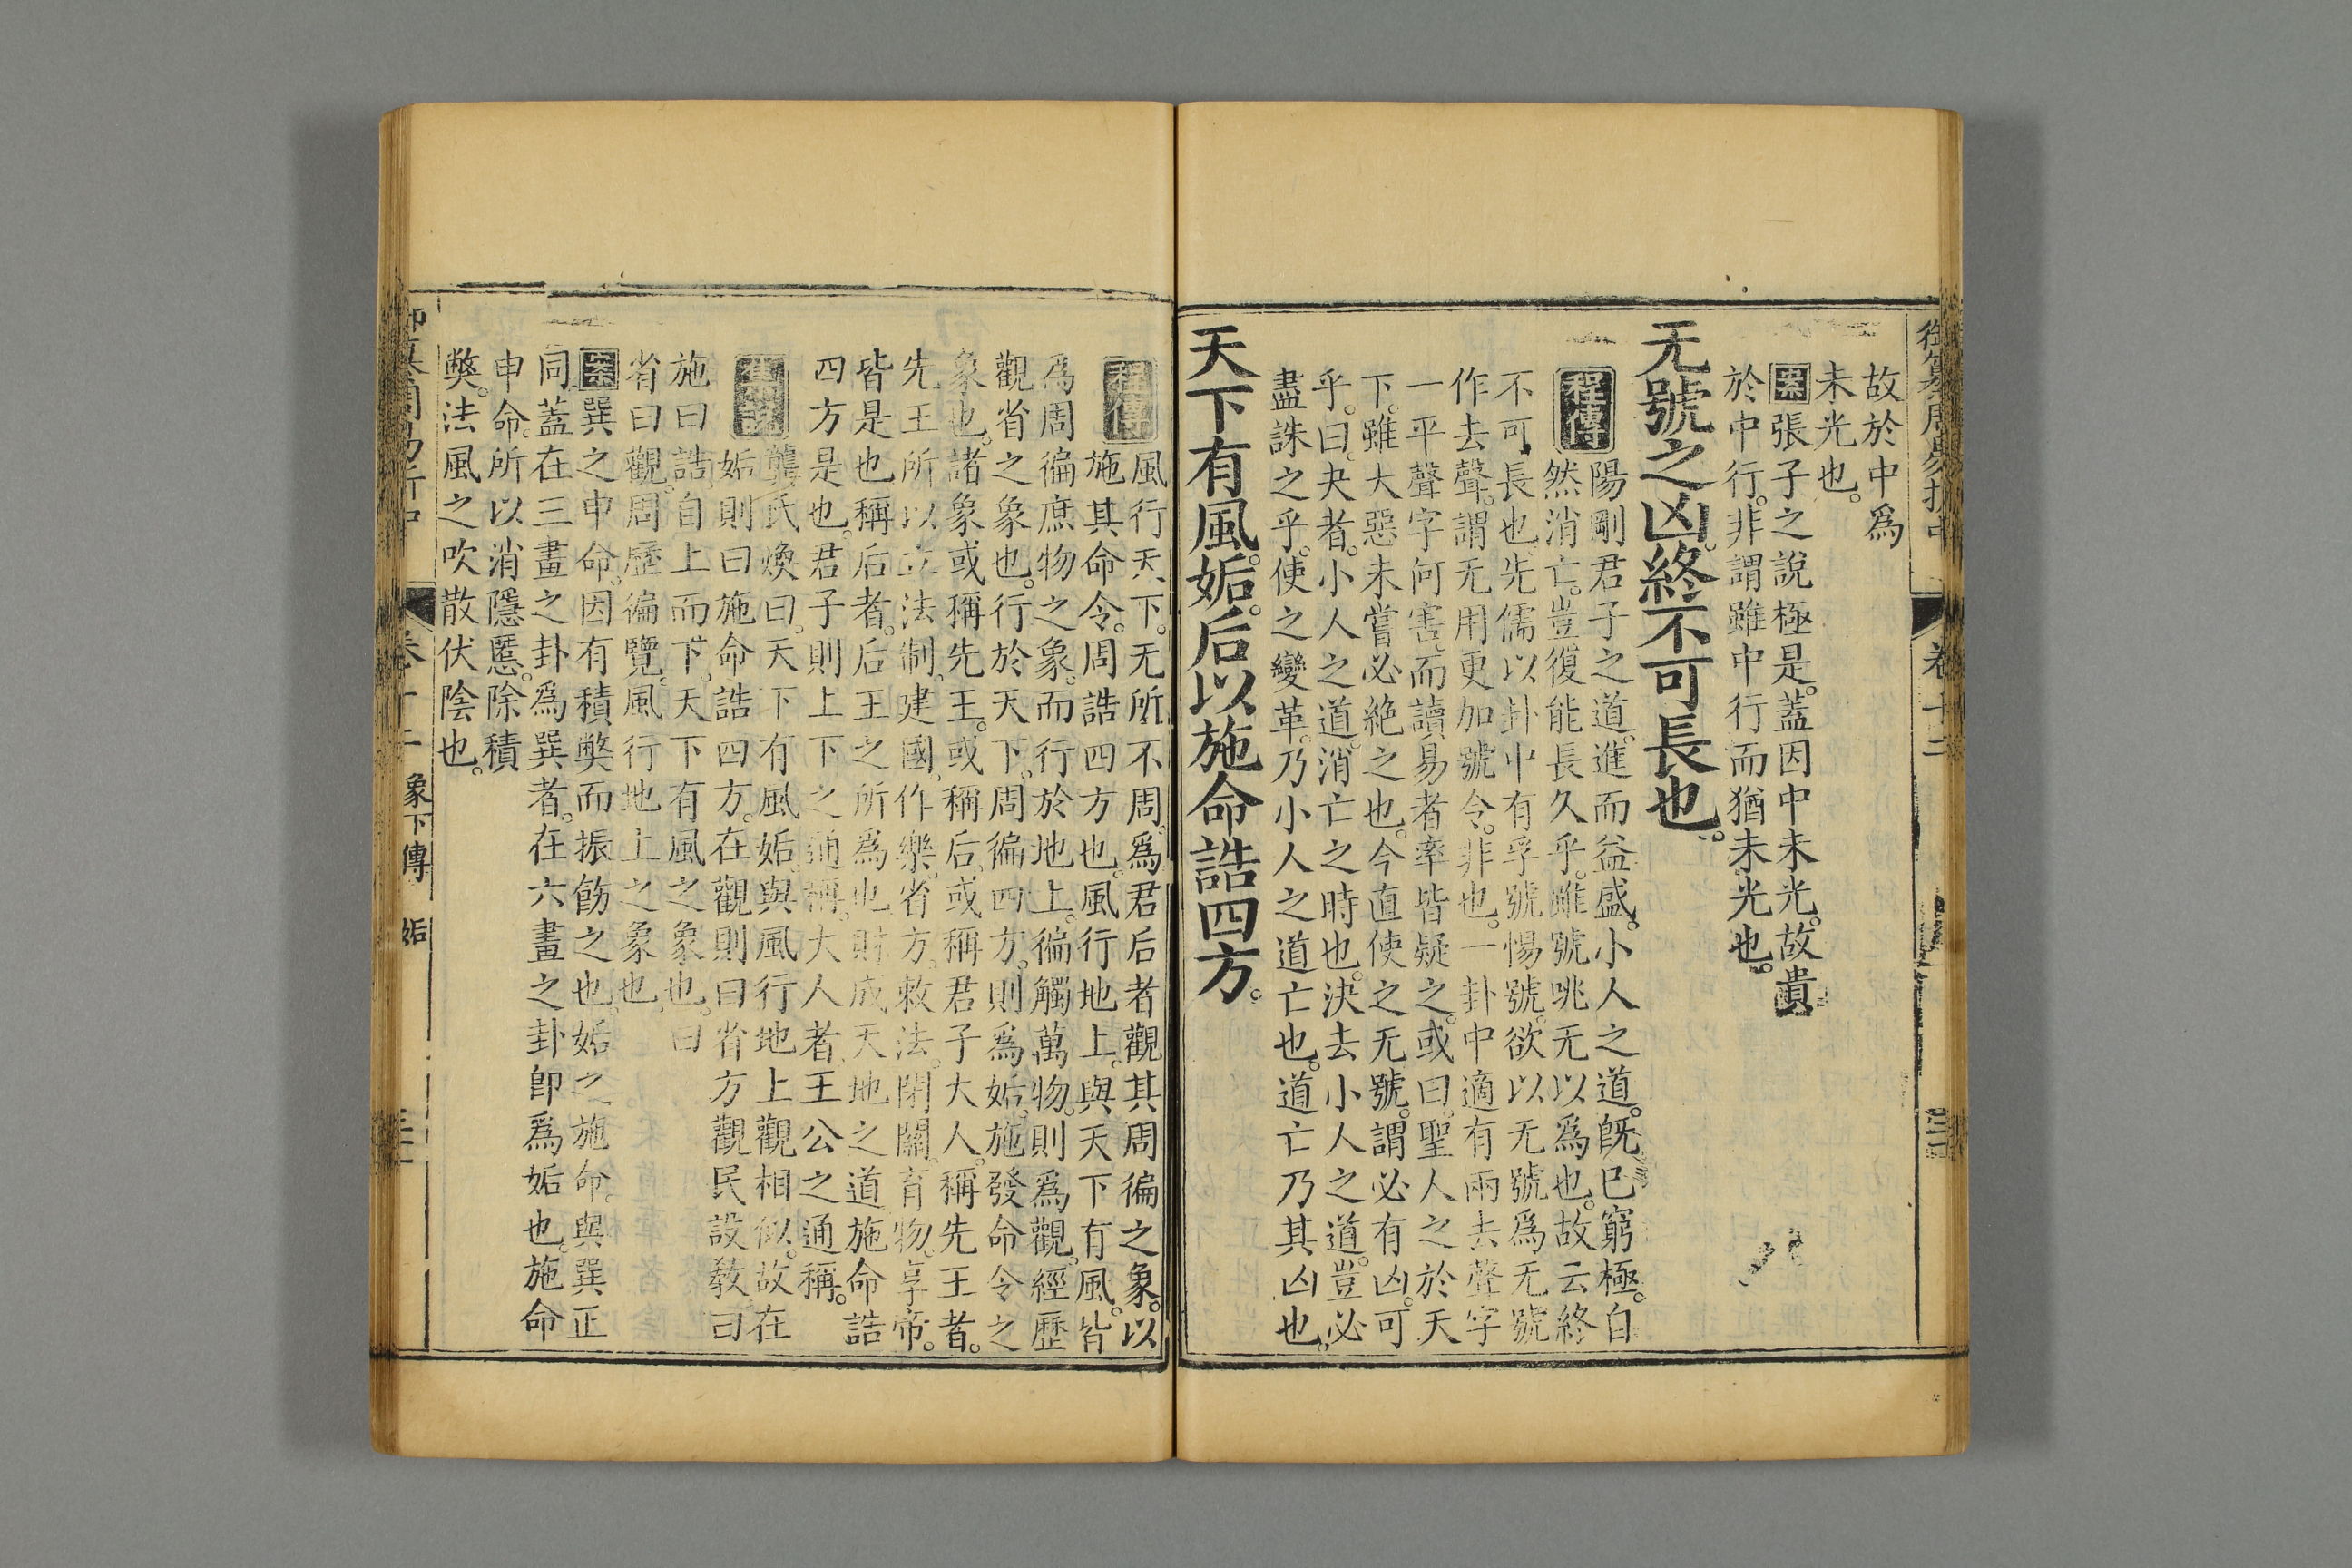 御纂周易折中
卷十二
故於中爲
未光也。
案張子之說極是。蓋因中未光。故貴
於中行。非謂雖中行而猶未光也。
无號之凶。終不可長也。
程傳陽剛君子之道。進而益盛。小人之道。旣已窮極。自
然消亡。豈復能長久乎。雖號咷无以爲也。故云終
不可長也。先儒以卦中有孚號惕號。欲以无號爲无號
作去聲。謂无用更加號令。非也。一卦中適有兩去聲字
一平聲字何害。而讀易者率皆疑之。或曰。聖人之於天
下。雖大惡未嘗必絶之也。今直使之无號。謂必有凶。可
乎。曰。夬者。小人之道。消亡之時也。決去小人之道。豈必
盡誅之乎。使之變革。乃小人之道亡也。道亡乃其凶也。
天下有風。姤。后以施命誥四方。
程傳風行天下。无所不周。爲君后者觀其周徧之象。以
施其命令。周誥四方也。風行地上。與天下有風。皆
爲周徧庶物之象。而行於地上。徧觸萬物。則爲觀。經歷
觀省之象也。行於天下。周徧四方。則爲姤。施發命令之
象也。諸象或稱先王。或稱后。或稱君子大人。稱先王者。
先王所以立法制。建國。作樂。省方。敕法。閉關。育物。享帝。
皆是也。稱后者。后王之所爲也。財成天地之道施命誥
四方是也。君子則上下之通稱。大人者王公之通稱。
集說龔氏煥曰。天下有風姤。與風行地上觀相似。故在
姤則曰施命誥四方。在觀則曰省方觀民設敎。曰
施曰誥。自上而下。天下有風之象也。曰
省曰觀。周歷徧覽。風行地上之象也。
案巽之申命。因有積獘而振飭之也。姤之施命。與巽正
同。蓋在三畫之卦爲巽者。在六畫之卦卽爲姤也。施命
申命。所以消隱慝。除積
獘。法風之吹散伏陰也。
御纂周易折中
卷十二
象下傳
姤